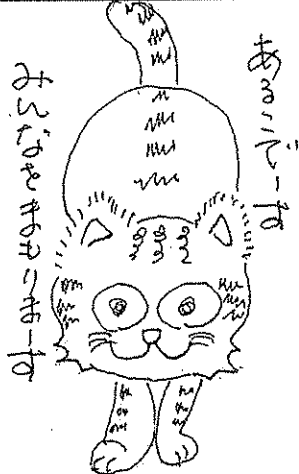 あるこでーす
みんなをまもりまーす